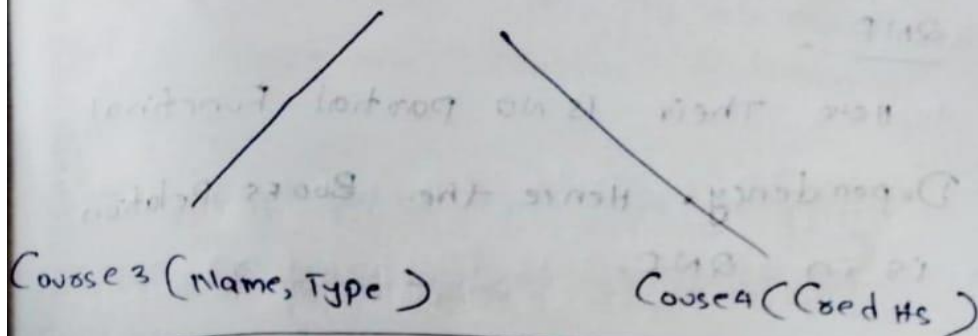 Course3 (Name, Type)
Couse4 (Credits)